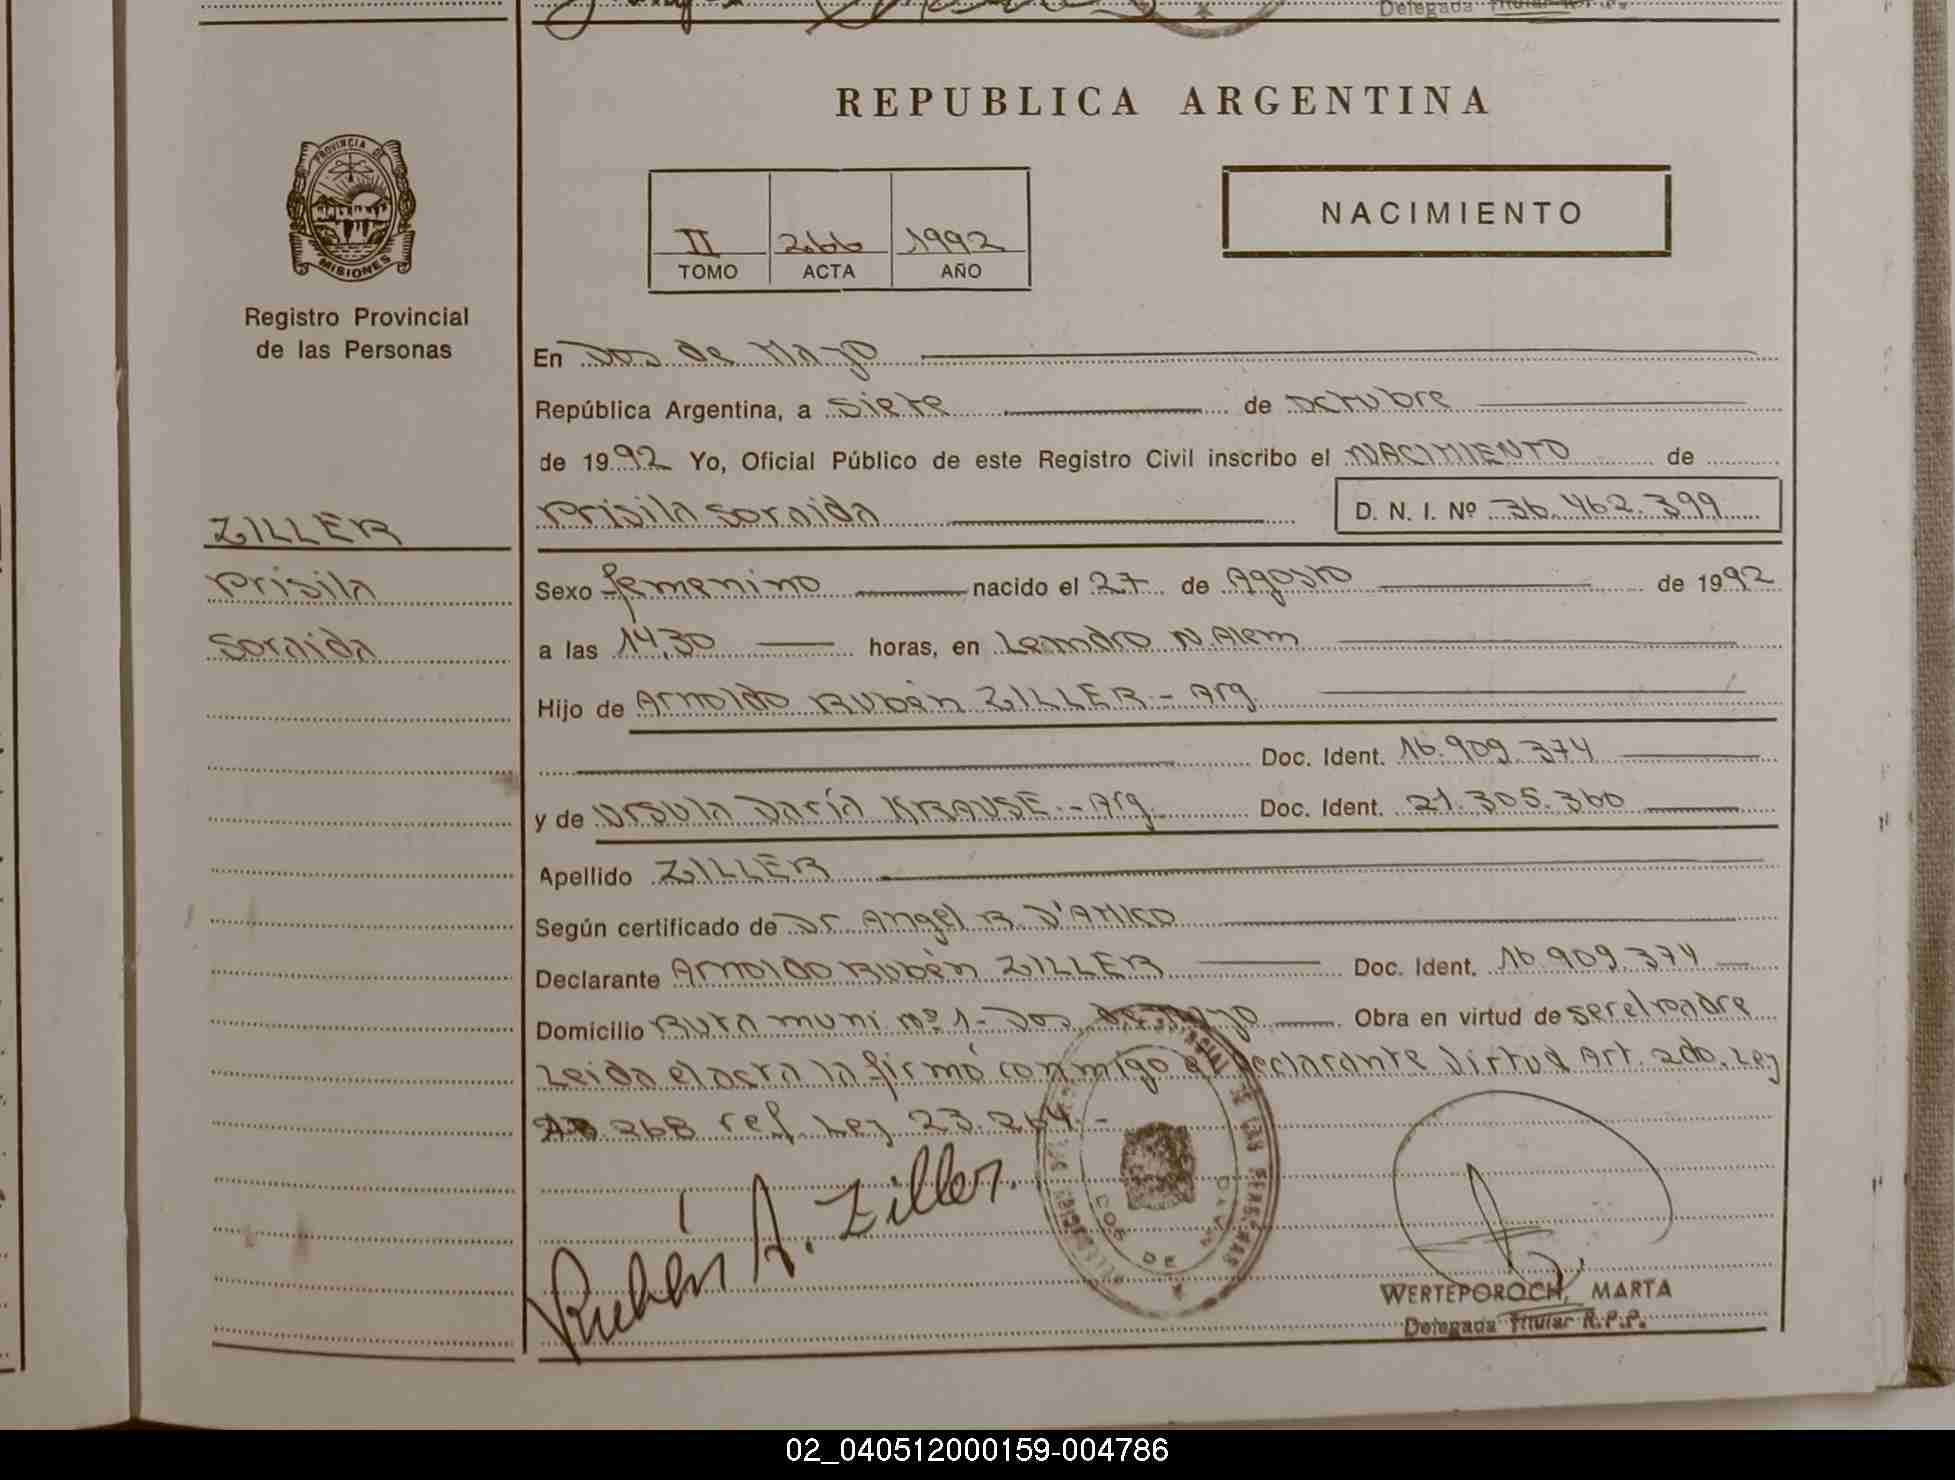 Delegada Titular R.P.P.
REPUBLICA ARGENTINA
PROVINCIA DE
MISIONES
Registro Provincial
de las Personas
II 266 1992
TOMO ACTA AÑO
NACIMIENTO
En Dos de Mayo
República Argentina, a siete de octubre
de 1992 Yo, Oficial Público de este Registro Civil inscribo el NACIMIENTO de
Prisila Soraida D. N. I. Nº 36.462.399
ZILLER
Prisila
Soraida
Sexo femenino nacido el 27 de Agosto de 1992
a las 14,30 horas, en Leandro N. Alem
Hijo de Arnoldo Rubén ZILLER - Arg.
Doc. Ident. 16.909.374
y de Ursula Daría KRAUSE - Arg. Doc. Ident. 21.305.360
Apellido ZILLER
Según certificado de Dr. Angel R. D'AMICO
Declarante Arnoldo Rubén ZILLER Doc. Ident. 16.909.374
Domicilio Ruta muni nº 1 - Dos de Mayo Obra en virtud de ser el padre
Leida el acta la firmó conmigo el declarante Virtud Art. 2do. Ley
268 ref. Ley 23.264.-
Rubén A. Ziller.
WERTEPOROCH, MARTA
Delegada Titular R.P.P.
02_040512000159-004786